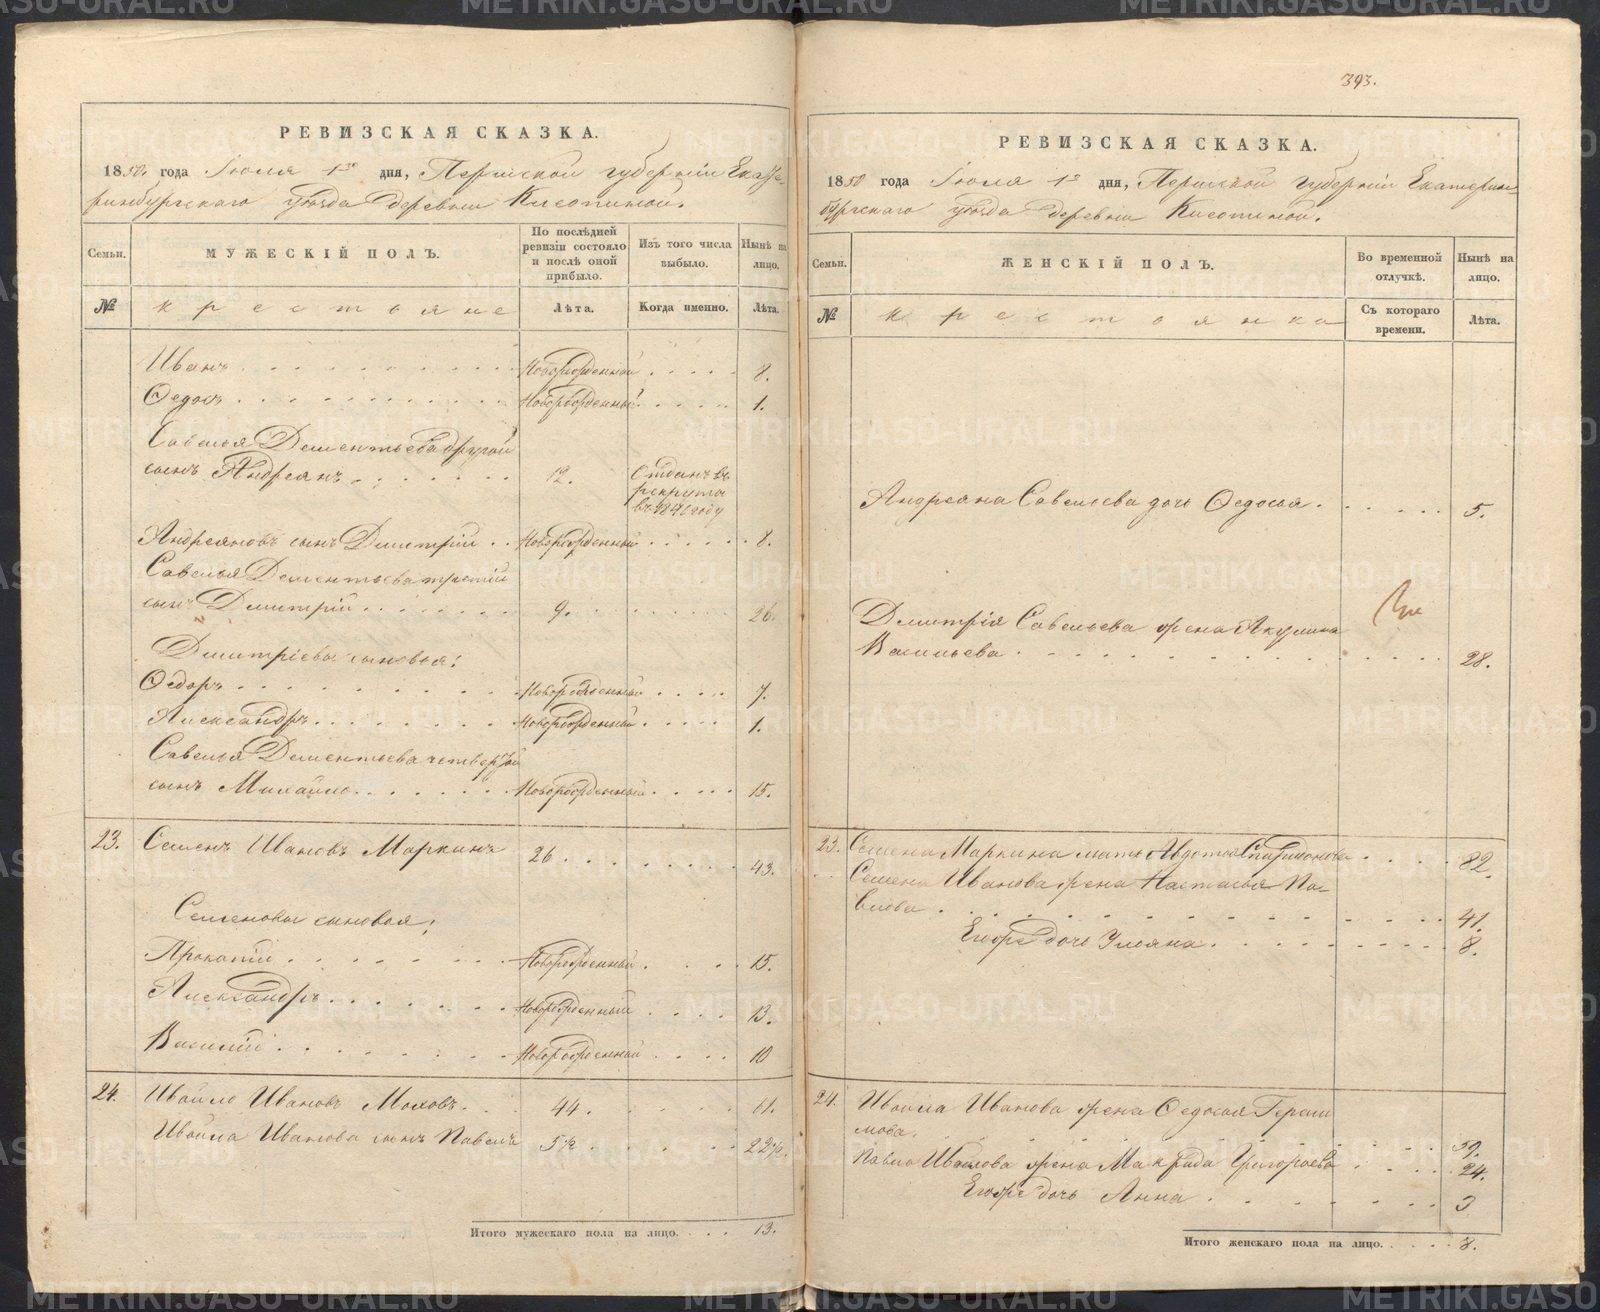 РЕВИЗСКАЯ СКАЗКА.
1850. года Іюля 1го дня, Пермской губерніи Екате-
ринбургскаго уѣзда деревни
Семьи.
МУЖЕСКІЙ ПОЛЪ.
По послѣдней ревизіи состояло и послѣ оной прибыло.
Изъ того числа выбыло.
Нынѣ на лицо.
№
крестьяне
Лѣта.
Когда именно.
Лѣта.
Иванъ Новорожденный 8.
Ѳедосъ Новорожденный 1.
Савелья Дементьева другой
сынъ Андреянъ 12. Отданъ въ рекруты въ году
Андреяновъ сынъ Дмитрій Новорожденный 8.
Савелья Дементьева третій
сынъ Дмитрій 9. 26.
Дмитріевы сыновья:
Ѳедоръ Новорожденный 7.
Александръ Новорожденный 1.
Савелья Дементьева четвертой
сынъ Михайло Новорожденный 15.
23. Семенъ Ивановъ Маркинъ 26 43.
Семеновы сыновья;
Прокопій Новорожденный 15.
Александръ Новорожденный 13.
Василій Новорожденный 10
24. Ивойло Ивановъ Моховъ 44. 61.
Ивойла Иванова сынъ Павелъ 5½ 22½.
Итого мужескаго пола на лицо. 13.
393.
РЕВИЗСКАЯ СКАЗКА.
1850 года Іюля 1го дня, Пермской губерніи Екатерин-
бургскаго уѣзда деревни
Семьи.
ЖЕНСКІЙ ПОЛЪ.
Во временной отлучкѣ.
Нынѣ на лицо.
№
крестьянки
Съ котораго времени.
Лѣта.
Андреяна Савельева дочь Ѳедосья 5.
Дмитрія Савельева жена Акулина
Васильева 28.
23. Семена Маркина мать Авдотья Спиридонова 82.
Семена Иванова жена Настасья Па-
влова 41.
Егоже дочь Ульяна 8.
24. Ивойла Иванова жена Ѳедосья Гераси-
мова. 59.
Павла Ивойлова жена Макрида Григорьева 24.
Егоже дочь Анна 3
Итого женскаго пола на лицо. 8.
METRIKI.GASO-URAL.RU